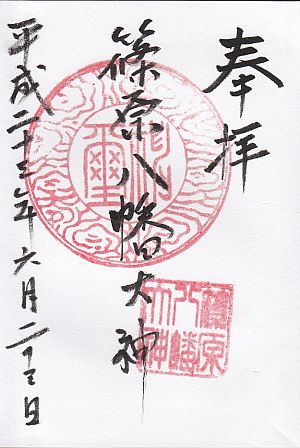 奉拝
篠原八幡大神
平成二十三年六月二十三日
篠原
八幡
大神